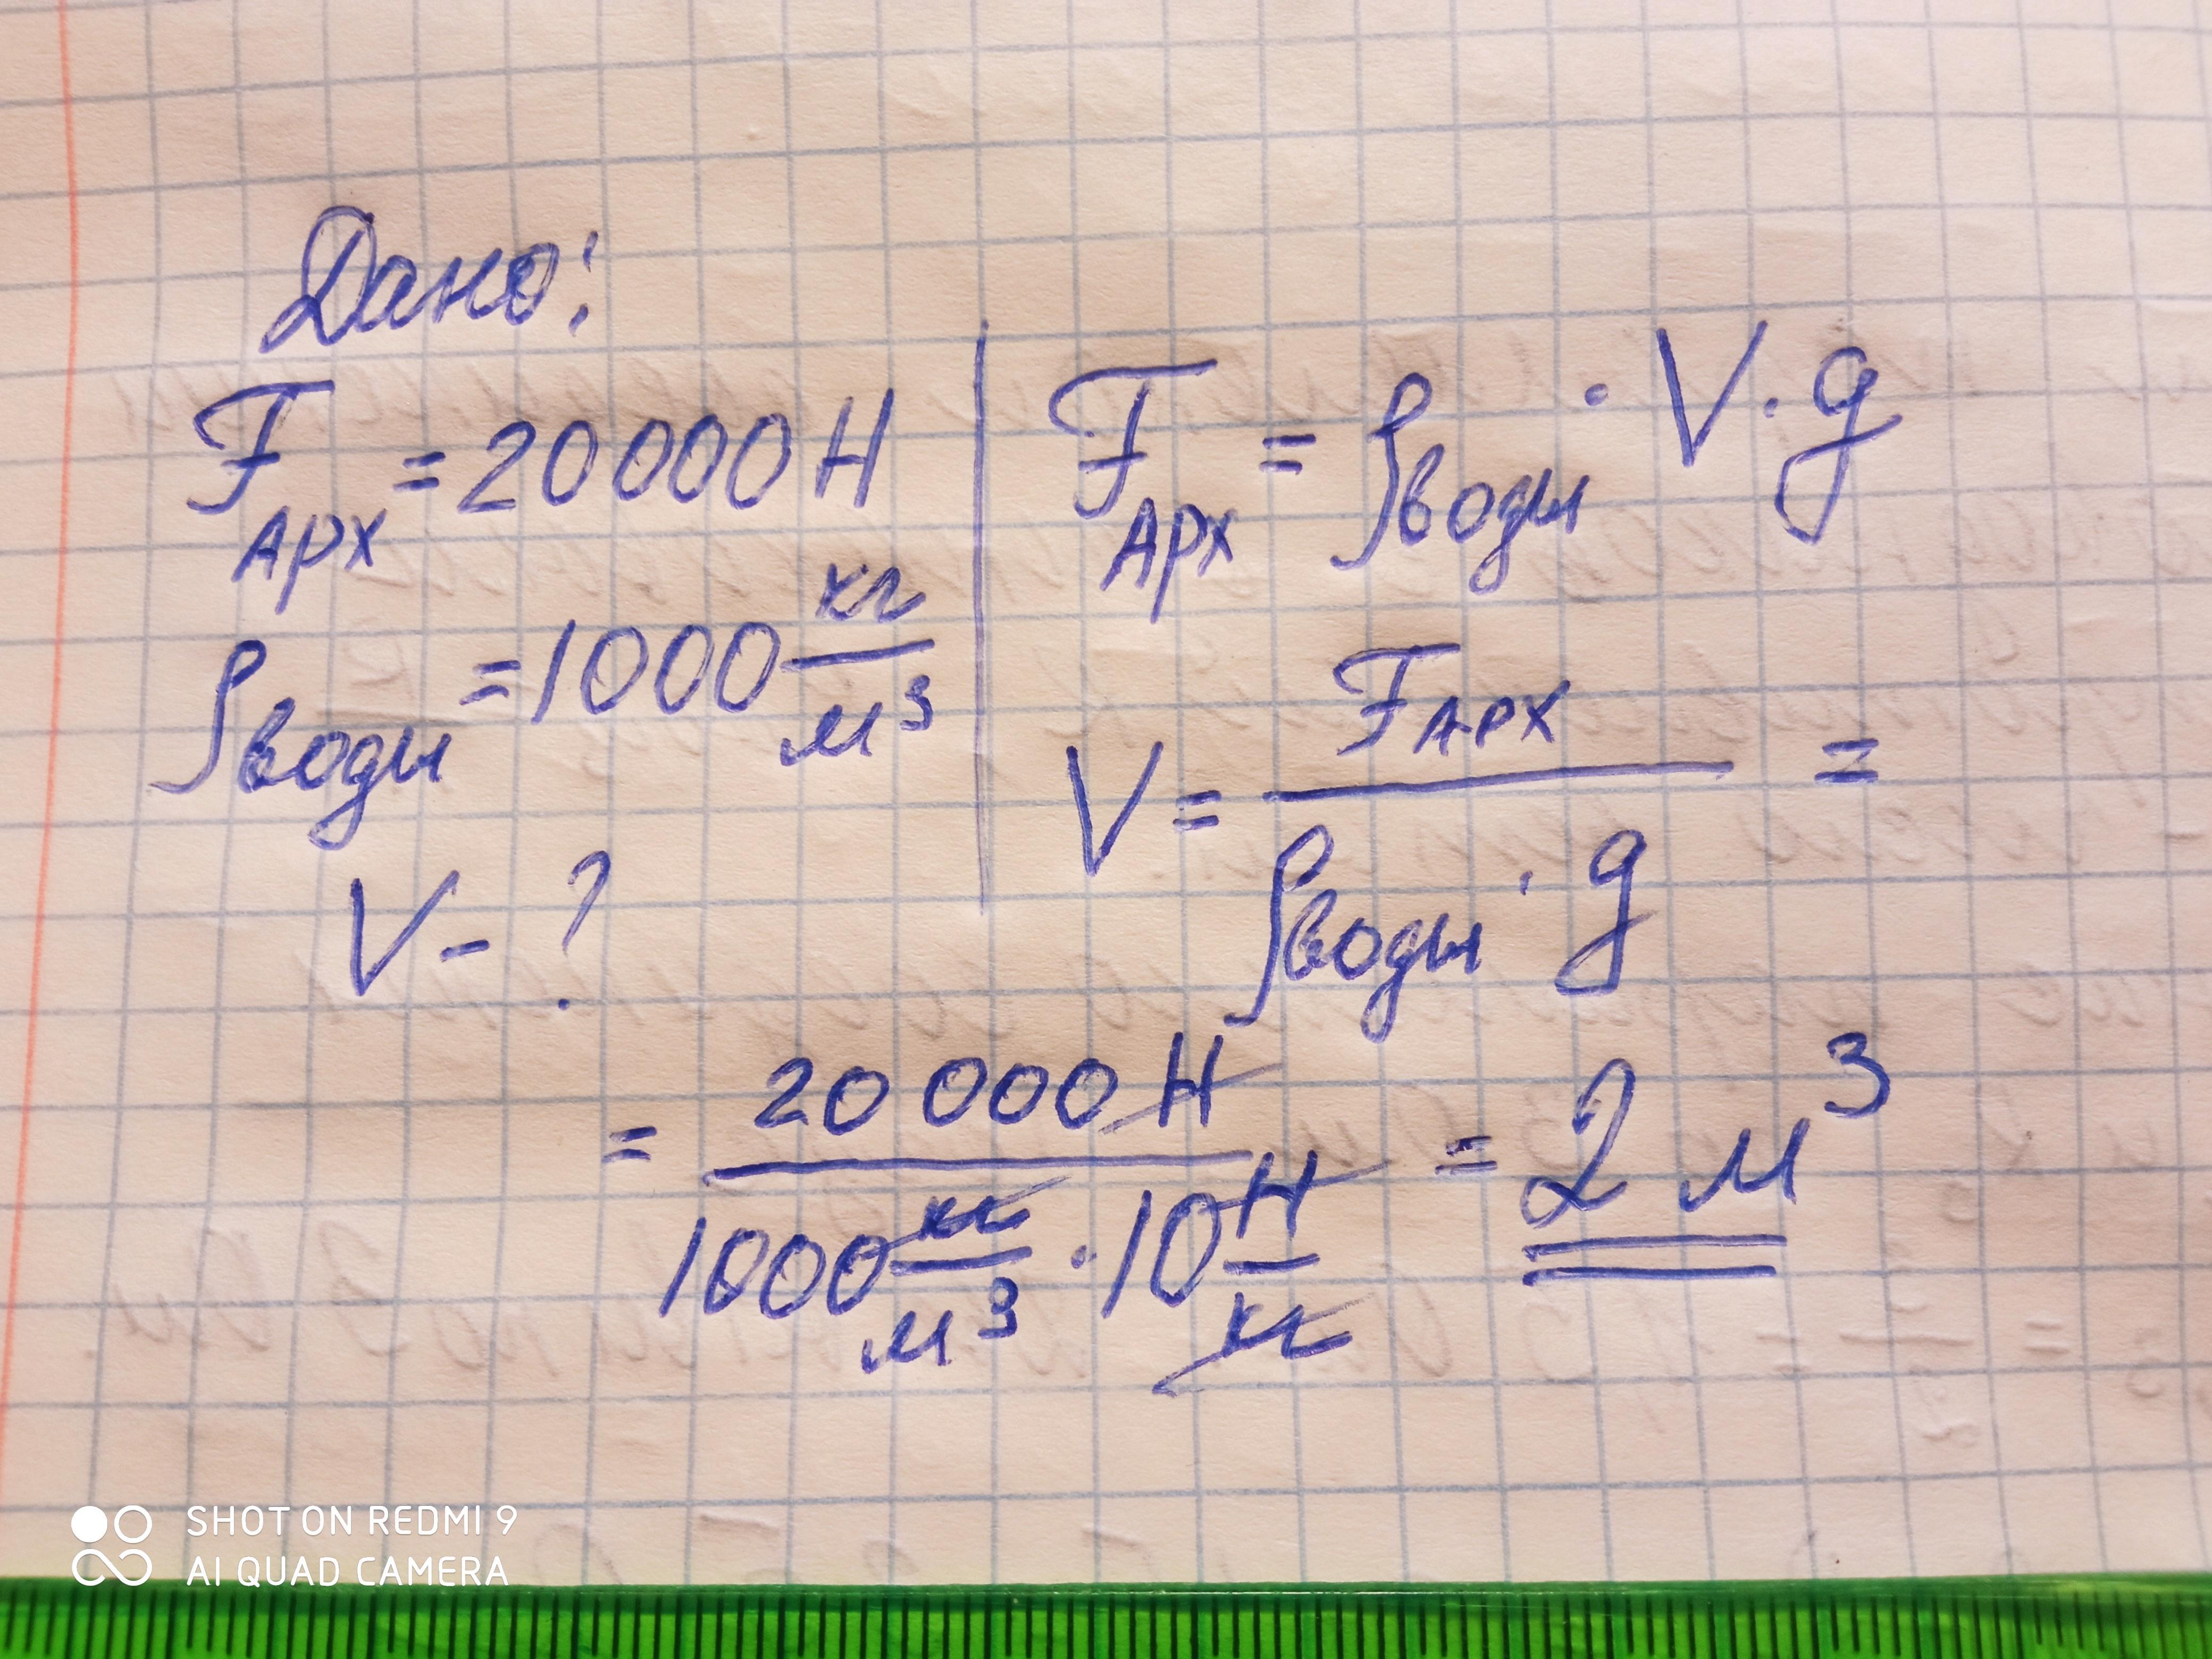 Дано:
F_Арх = 20000 Н
ρ_воды = 1000 кг/м³
V - ?
F_Арх = ρ_воды · V · g
V = F_Арх / ρ_воды · g =
= 20 000 Н / 1000 кг/м³ · 10 Н/кг = 2 м³
SHOT ON REDMI 9
AI QUAD CAMERA